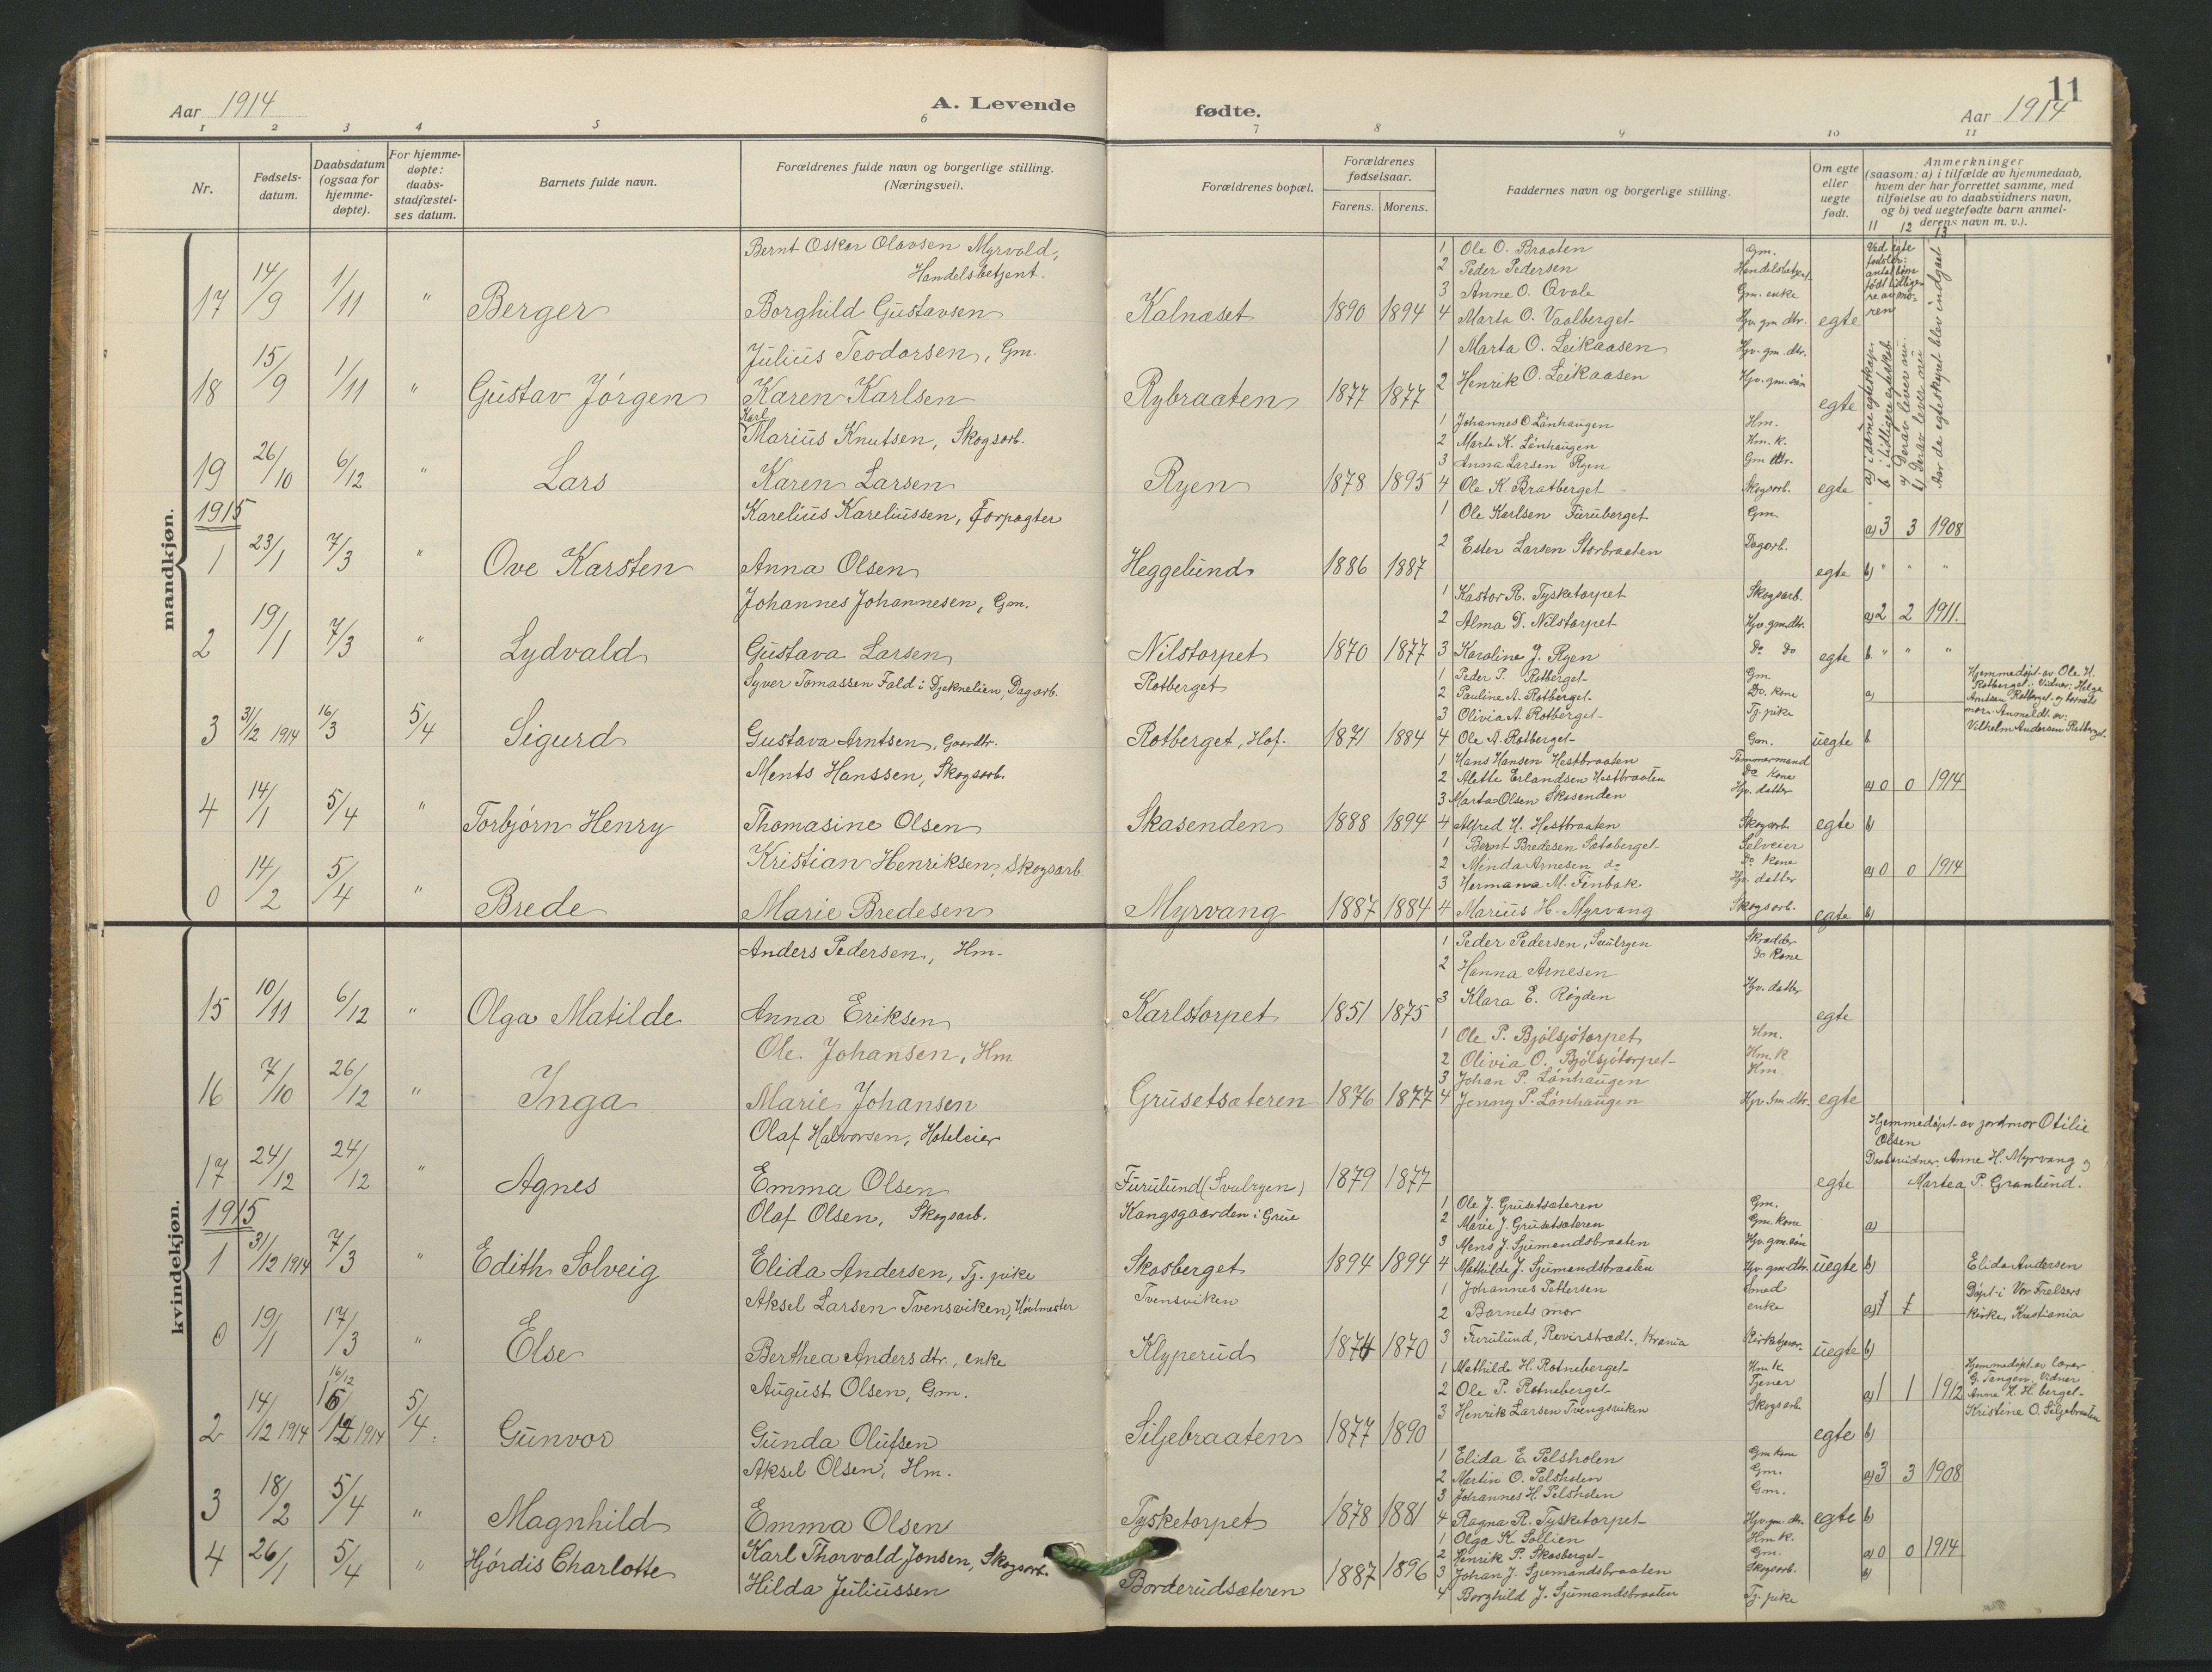 Aar 1914
A. Levende
fødte.
11
Aar 1914
1 2 3 4 5 6 7 8 9 10 11
Nr.
Fødsels-
datum.
Daabsdatum
(ogsaa for
hjemme-
døpte).
For hjemme-
døpte:
daabs-
stadfæstel-
ses datum.
Barnets fulde navn.
Forældrenes fulde navn og borgerlige stilling.
(Næringsvei).
Forældrenes bopæl.
Forældrenes
fødselsaar.
Farens. Morens.
Faddernes navn og borgerlige stilling.
Om egte
eller
uegte
født.
Anmerkninger
(saasom: a) i tilfælde av hjemmedaab,
hvem der har forrettet samme, med
tilføielse av to daabsvidners navn,
og b) ved uegtefødte barn anmel-
derens navn m. v.).
11 12 13
Ved egte
fødsler:
antal børn
født tidlige
re av mo-
ren
a) i samme egteskap.
b. i tidligere egteskab.
a) Derav lever nu.
b) Derav lever nu
Aar da egteskapet blev indgaat
mandkjøn.
17 14/9 1/11 " Berger
Bernt Oskar Olavsen Myrvold,
Handelsbetjent.
Borghild Gustavsen
Kalnæset 1890 1894
1 Ole O. Braaten Gm.
2 Peder Pedersen Handelsbetjent
3 Anne O. Qvale Gm. enke
4 Marta O. Vaalberget Hjv. gm. dtr.
egte
18 15/9 1/11 " Gustav Jørgen
Julius Teodorsen, Gm.
Karen Karlsen
Rybraaten 1877 1877
1 Marta O. Leikaasen Hjv. gm. dtr.
2 Henrik O. Leikaasen Hjv. gm. søn
egte
19 26/10 6/12 " Lars
Karl
Marius Knutsen, Skogsarb.
Karen Larsen
Ryen 1878 1895
1 Johannes O Lønhaugen Hm.
2 Marte K. Lønhaugen Hm. k.
3 Anna Larsen Ryen Gm dtr.
4 Ole K. Bratberget Skogsarb.
egte
1915
1 23/1 7/3 " Ove Karsten
Karelius Kareliussen, Forpagter
Anna Olsen
Heggelund 1886 1887
1 Ole Karlsen Furuberget Gm.
2 Ester Larsen Storbraaten Dagarb.
egte
a) 3 3 1908
b) " " "
2 19/1 7/3 " Lydvald
Johannes Johannesen, Gm.
Gustava Larsen
Nilstorpet 1870 1877
1 Kastor R. Tysketorpet Skogsarb.
2 Alma D. Nilstorpet Hjv. gm. dtr.
3 Karoline J. Ryen Do Do
egte
a) 2 2 1911.
b " " "
3 31/12 1914 16/3 5/4 Sigurd
Syver Tomassen Fald i Djeknelien, Dagarb.
Gustava Arntsen, Gaardtr.
Rotberget
Rotberget, Hof. 1871 1884
1 Peder P. Rotberget Gm.
2 Pauline A. Rotberget Do. Kone
3 Olivia A. Rotberget Tj. pike
4 Ole A. Rotberget Gm.
uegte
a)
b
Hjemmedøpt av Ole H.
Rotberget. Vidner: Helga
Arntsen Rotberget og barnets
mor. Anmeldt av:
Vilhelm Andersen Rotberget.
4 14/1 5/4 " Torbjørn Henry
Ments Hanssen, Skogsarb.
Thomasine Olsen
Skasenden 1888 1894
1 Hans Hansen Hestbraaten Tømmermand
2 Alette Erlandsen Hestbraaten Do Kone
3 Marta Olsen Skasenden Hjv. datter
4 Alfred H. Hestbraaten Skogsarb.
egte
a) 0 0 1914
b)
0 14/2 5/4 " Brede
Kristian Henriksen, Skogsarb
Marie Bredesen
Myrvang 1887 1884
1 Bernt Bredesen Sætaberget Selveier
2 Minda Arnesen do Do Kone
3 Hermana M. Finbak Hjv. datter
4 Marius H. Myrvang Skogsarb.
egte
a) 0 0 1914
b)
kvindekjøn.
15 10/11 6/12 " Olga Matilde
Anders Pedersen, Hm.
Anna Eriksen
Karlstorpet 1851 1875
1 Peder Pedersen, Svulryen Skrædder
2 Hanna Arnesen Do Kone
3 Klara E. Røgden Hjv. datter
egte
16 7/10 26/12 " Inga
Ole Johansen, Hm
Marie Johansen
Grusetsæteren 1876 1877
1 Ole P. Bjølsjøtorpet Hm.
2 Olivia O. Bjølsjøtorpet Hm. k
3 Johan P. Lønhaugen Hm
4 Jenny P. Lønhaugen Hjv. Gm. dtr.
egte
17 24/12 24/12 " Agnes
Olaf Halvorsen, Hoteleier
Emma Olsen
Furulund (Svulryen) 1879 1877
egte
Hjemmedøpt av jordmor Otilie
Olsen
Daabsvidner: Anne H. Myrvang og
Martea P. Granlund.
1915
1 31/12 1914 7/3 " Edith Solveig
Olaf Olsen, Skogsarb.
Elida Andersen, Tj. pike
Kangsgaarden i Grue
Skasberget 1894 1894
1 Ole J. Grusetsæteren Gm.
2 Marie J. Grusetsæteren Gm. kone
3 Mens J. Sjumandsbraaten Hjv. gm. søn
4 Mathilde J. Sjumandsbraaten Hjv. gm. dtr.
uegte
a)
b)
Elida Andersen
0 19/1 17/3 " Else
Aksel Larsen Tvensviken, Høvlmester
Berthea Anders dtr., enke
Tvensviken
Klyperud 1874 1870
1 Johannes Pettersen Smed
2 Barnets mor enke
3 Furulund, Revirstradt., Krania Kirketjener
uegte
a)
b)
Døpt i Vor Frelsers
Kirke, Kristiania
2 14/12 1914 16/12 1914 5/4. Gunvor
16/12
August Olsen, Gm.
Gunda Olufsen
Siljebraaten 1877 1890
1 Mathilde H. Rotneberget Hm k
2 Ole P. Rotneberget Tjener
3 Henrik Larsen Tvengsviken Skogsarb
egte
a) 1 1 1912
b)
Hjemmedøpt av lærer
G. Tangen. Vidner
Anne K. H. berget
Kristine O. Siljebraaten
3 18/2 5/4 " Magnhild
Aksel Olsen, Hm.
Emma Olsen
Tysketorpet 1878 1881
1 Elida E. Pelsholen Gm kone
2 Martin O. Pelsholen Gm.
3 Johannes H. Pelsholen Gm.
4 Ragna R. Tysketorpet Hjv. gm. dtr.
egte
a) 3 3 1908
b)
4 26/1 5/4 " Hjørdis Charlotte
Karl Thorvald Jonsen, Skogsarb.
Hilda Juliussen
Borderudsæteren 1887 1896
1 Olga K. Sollien Hm k.
2 Henrik P. Skasberget Gm.
3 Johan J. Sjumandsbraaten Skogsarb.
4 Borghild J. Sjumandsbraaten Tj. pike
a) 0 0 1914
b)